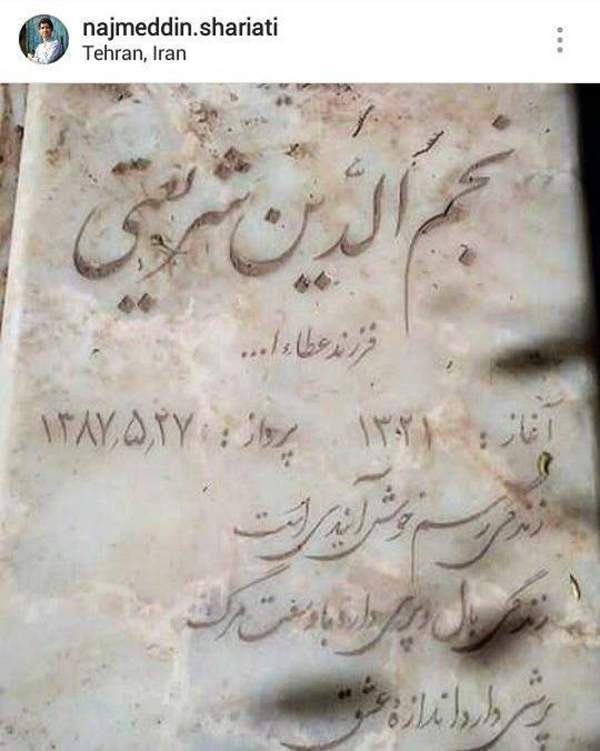 najmeddin.shariati
Tehran, Iran
نجم الدّین شریعتی
فرزند عطاءا...
آغاز : ۱۳۲۱ پرواز : ۱۳۸۷٫۵٫۲۷
زندگی رسم خوش آیندی است
زندگی بال و پری دارد با وسعت مرگ
پرشی دارد اندازهٔ عشق